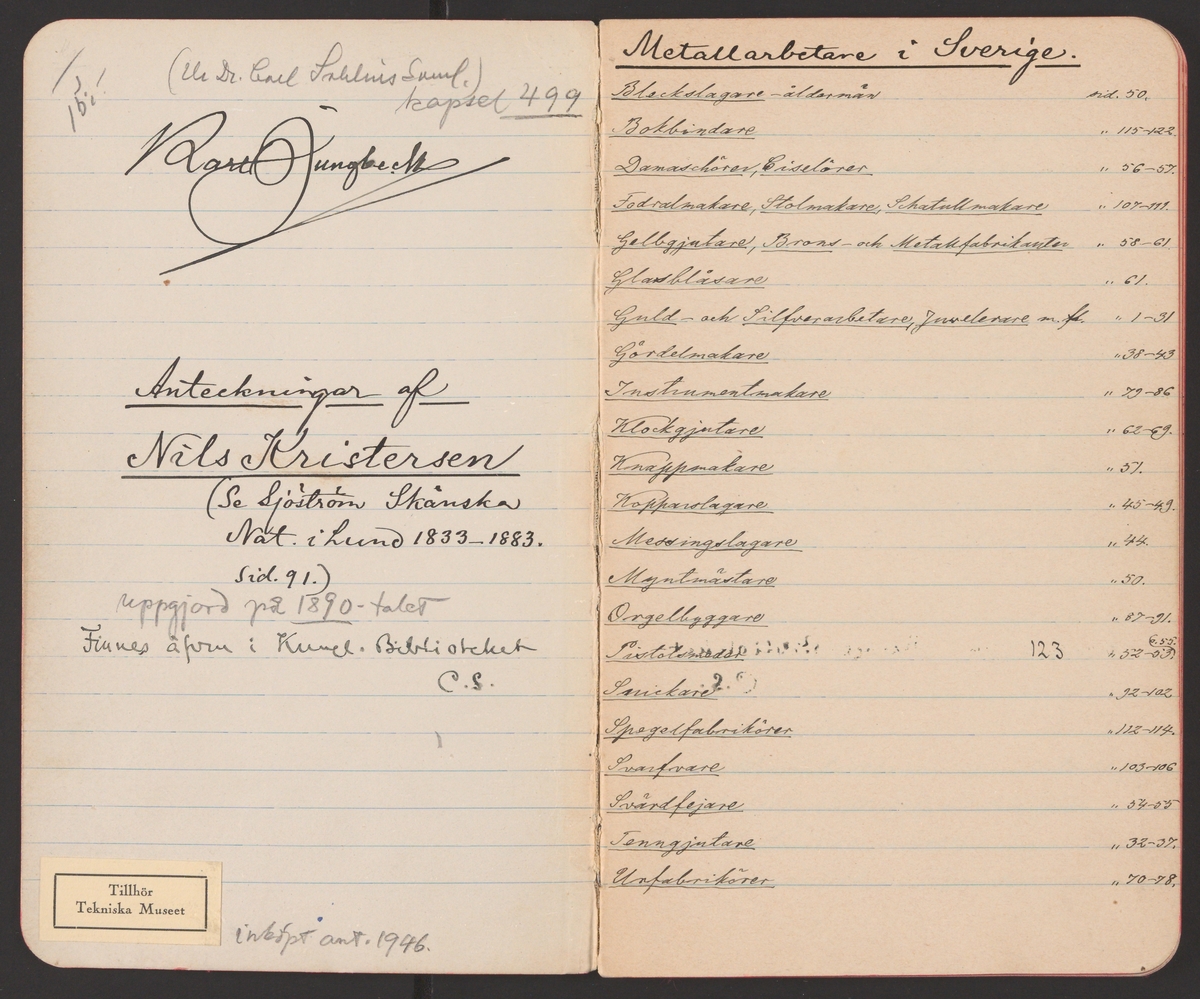 (Ur Dr. Carl Sahlins Saml.)
kapsel 499
Karl Ljungbeck
Anteckningar af
Nils Kristersen
(Se Sjöström Skånska
Nat. i Lund 1833-1883.
Sid. 91.)
uppgjord på 1890-talet
Finnes äfven i Kungl. Biblioteket
C.S.
Tillhör
Tekniska Museet
inköpt ant. 1946.
Metallarbetare i Sverige.
Bleckslagare-åldermän sid. 50.
Bokbindare " 115-122
Damaschörer, Ciselörer " 56-57.
Fodralmakare, Stolmakare, Schatullmakare " 107-111.
Gelbgjutare, Brons- och Metallfabrikanter " 58-61
Glasblåsare " 61.
Guld- och Silfverarbetare, Juvelerare m. fl. " 1-31
Gördelmakare " 38-43
Instrumentmakare " 79-86
Klockgjutare " 62-69.
Knappmakare " 51.
Kopparslagare " 45-49.
Messingslagare " 44.
Myntmästare " 50.
Orgelbyggare " 87-91.
Pistolsmeder 123 " 52-53
Snickare " 92-102
Spegelfabrikörer " 112-114.
Svarfvare " 103-106
Svärdfejare " 54-55
Tenngjutare " 32-37.
Urfabrikörer " 70-78.